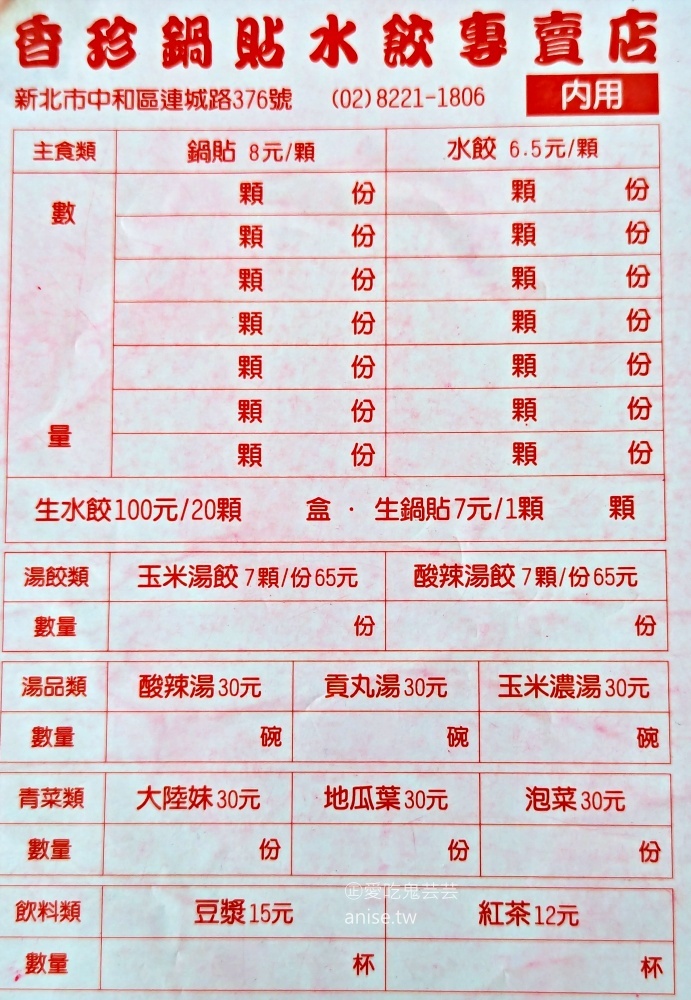 香珍鍋貼水餃專賣店
新北市中和區連城路376號 (02)8221-1806 內用
主食類 鍋貼 8元/顆 水餃 6.5元/顆
數 顆 份 顆 份
顆 份 顆 份
顆 份 顆 份
顆 份 顆 份
顆 份 顆 份
量 顆 份 顆 份
顆 份 顆 份
生水餃100元/20顆 盒 · 生鍋貼7元/1顆 顆
湯餃類 玉米湯餃 7顆/份65元 酸辣湯餃 7顆/份65元
數量 份 份
湯品類 酸辣湯30元 貢丸湯30元 玉米濃湯30元
數量 碗 碗 碗
青菜類 大陸妹30元 地瓜葉30元 泡菜30元
數量 份 份 份
飲料類 豆漿15元 紅茶12元
數量 杯 杯
㊣愛吃鬼芸芸
anise.tw